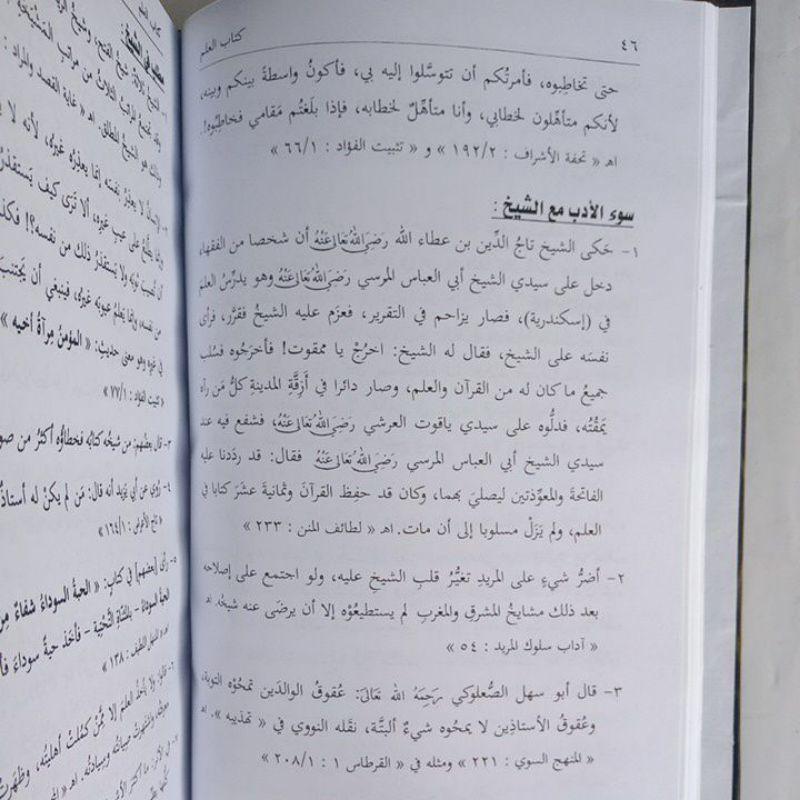 ٤٦
كتاب العلم
حتى تخاطِبوه، فأمرتُكم أن تتوسَّلوا إليه بي، فأكونُ واسطةً بينكم وبينه،
لأنكم متأهِّلون لخطابي، وأنا متأهِّلٌ لخطابه، فإذا بلَغتُم مَقامي فخاطِبُوه!.
اهـ « تحفة الأشراف : ١٩٢/٢ » و « تثبيت الفؤاد : ٦٦/١ »
سوء الأدب مع الشيخ :
١- حَكى الشيخ تاجُ الدِّين بن عطاء الله رَضِيَ اللهُ تَعَالَى عَنْهُ أن شخصا من الفقهاء
دخل على سيدي الشيخ أبي العباس المرسي رَضِيَ اللهُ تَعَالَى عَنْهُ وهو يدرِّسُ العلم
في (إسكندرية)، فصار يزاحم في التقرير، فعزَم عليه الشيخُ فقرَّر، فرأى
نفسَه على الشيخ، فقال له الشيخ: اخرُجْ يا ممقوت! فأخرَجُوه فسُلب
جميعُ ما كان له من القرآن والعلم، وصار دائرا في أَزِقَّةِ المدينةِ كلُّ مَن رآه
يَمقُتُه، فدلُّوه على سيدي ياقوت العرشي رَضِيَ اللهُ تَعَالَى عَنْهُ، فشفع فيه عند
سيدي الشيخ أبي العباس المرسي رَضِيَ اللهُ تَعَالَى عَنْهُ فقال: قد ردَدنا عليه
الفاتحةَ والمعوِّذتين ليصليَ بهما، وكان قد حفِظ القرآن وثمانيةَ عشَرَ كتابا في
العلم، ولم يَزَلْ مسلوبا إلى أن مات. اهـ « لطائف المنن : ٢٣٣ »
٢- أضرُّ شيءٍ على المريدِ تغيُّرُ قلبِ الشيخِ عليه، ولو اجتمع على إصلاحه
بعد ذلك مشايخُ المشرقِ والمغربِ لم يستطيعُوْه إلا أن يرضَى عنه شيخُه. اهـ
« آداب سلوك المريد : ٥٤ »
٣- قال أبو سهل الصُّعلوكي رَحِمَهُ الله تَعَالَى: عُقوقُ الوالدَين تمحُوْه التوبة،
وعُقوقُ الأستاذِين لا يمحُوه شيءٌ ألبتَّة، نقَله النووي في « تهذيبه ». اهـ
« المنهج السوي : ٢٢١ » ومثله في « القرطاس ١ : ٢٠٨/١ »
كتاب العلم
مطلب في الشيخ:
١- الشيخُ ثلاثة: شيخُ الفتح، وشيخُ
المراتبِ الثلاثُ من مراتبِ المَشْيَخَة
وذلك هو الشيخُ المطلق. اهـ « غاية القصد والمراد :
نفسَه إنما يعذِرُه غيرُه، لأنه لا
على عيبِ غيرِه، ألا تَرَى كيف يَستقذرُ
ولا يَستقذرُ ذلك من نفسه؟! فكذا
من نفسِه، وإنما يَعلمُ عيوبَه غيرُه، فينبغي أن يَجتنبَ
في غيرِه وهو معنى حديثِ: « المؤمنُ مِرآةُ أخيه »
« تثبيت الفؤاد : ٧٧/١ »
٣- قال بعضُهم: مَن شيخُه كتابُه فخطاؤُه أكثرُ من
٤- رُوِي عن أبي يزيد أنه قال: مَن لم يكنْ له أستاذٌ
« تاج الأعراس : ١٦٤/١ »
٥- رأى [بعضهم] في كتابٍ: « الحبة السوداءُ شفاءٌ مِن
فأخَذ حبةً سوداءَ
: ١٣٨ »
٦- قالوا: ولا يأخُذُ العلمَ إلا ممَّن كمُلتْ أهليتُه، وظهرتْ